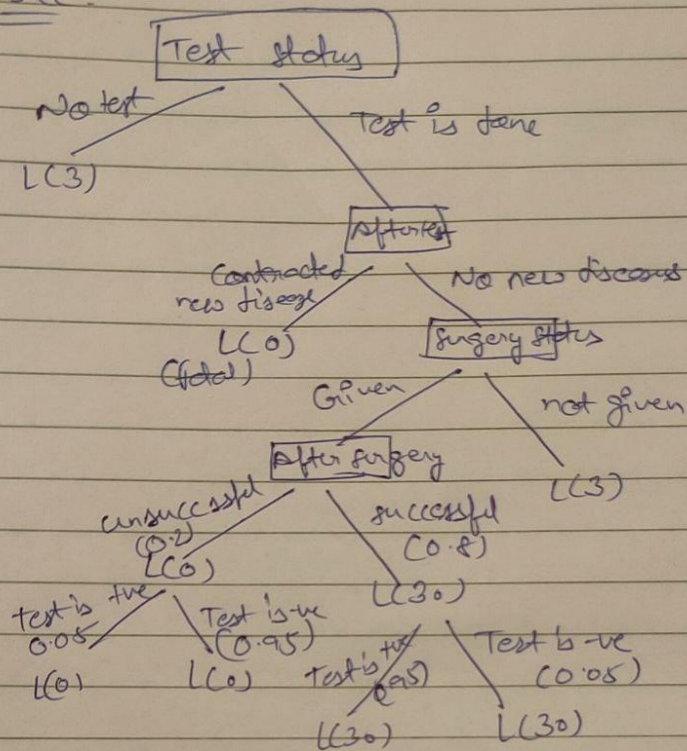 Test status
No test
Test is done
L(3)
After test
Contracted
new disease
No new diseases
L(0)
(fatal)
Surgery status
Given
not given
After surgery
L(3)
unsuccessful
(0.2)
successful
(0.8)
L(0)
L(30)
test is +ve
0.05
Test is -ve
(0.95)
Test is +ve
0.95)
Test is -ve
(0.05)
L(0)
L(0)
L(30)
L(30)